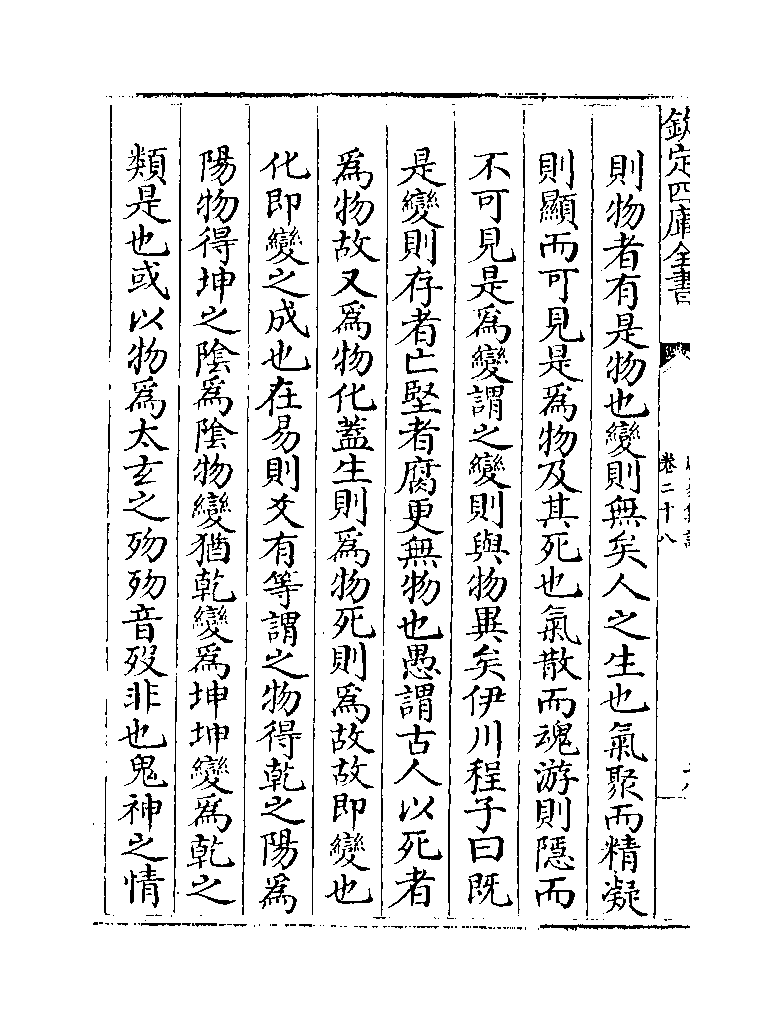 欽定四庫全書
卷二十八
則物者有是物也變則無矣人之生也氣聚而精凝
則顯而可見是為物及其死也氣散而魂游則隱而
不可見是為變謂之變則與物異矣伊川程子曰既
是變則存者亡堅者腐更無物也愚謂古人以死者
為物故又為物化蓋生則為物死則為故故即變也
化即變之成也在易則爻有等謂之物得乾之陽為
陽物得坤之陰為陰物變猶乾變為坤坤變為乾之
類是也或以物為太玄之歾歾音歿非也鬼神之情